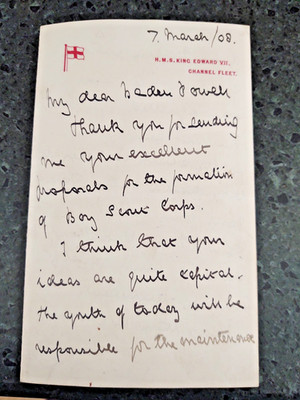 7. March/08.
H.M.S. KING EDWARD VII.
CHANNEL FLEET.
My dear Baden Powell
Thank you for sending
me your excellent
proposals for the formation
of Boy Scout Corps.
I think that your
ideas are quite capital.
The youth of today will be
responsible for the maintenance